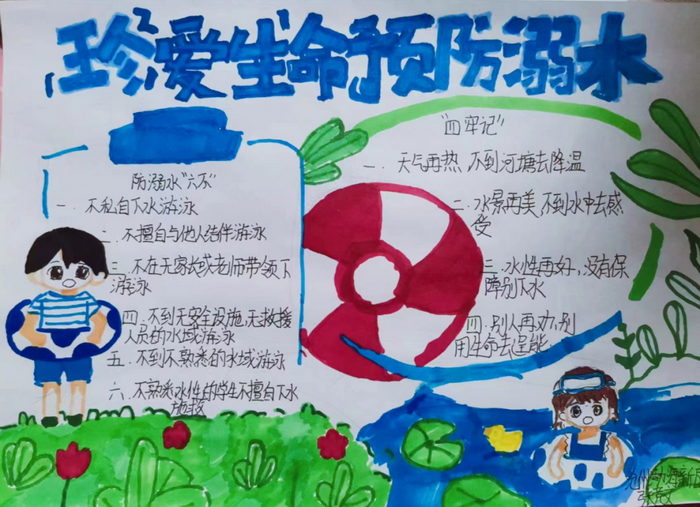 珍爱生命预防溺水
防溺水"六不"
一、不私自下水游泳
二、不擅自与他人结伴游泳
三、不在无家长或老师带领下
游泳
四、不到无安全设施,无救援
人员的水域游泳
五、不到不熟悉的水域游泳
六、不熟悉水性的学生不擅自下水
施救
"四牢记"
一、天气再热,不到河塘去降温
二、水景再美,不到水中去感
受
三、水性再好,没有保
障别下水
四、别人再劝,别
用生命去逞能
沧州渤海新区